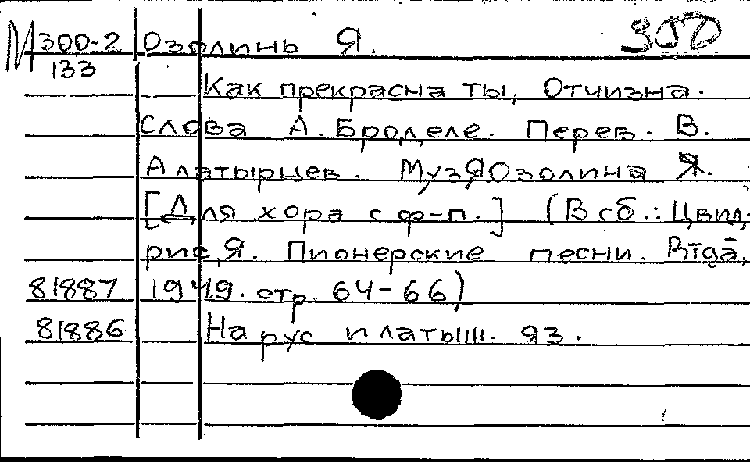 М300-2 Озолинь Я. 350
133
Как прекрасна ты, Отчизна.
Слова А. Броделе. Перев. В.
Алатырцев. Муз. Я Озолиня Я.
[Для хора с ф-п.] (В сб.: Цвид-
рис, Я. Пионерские песни. Rīgā,
81887 1949. стр. 64-66)
81886 На рус и латыш. яз.